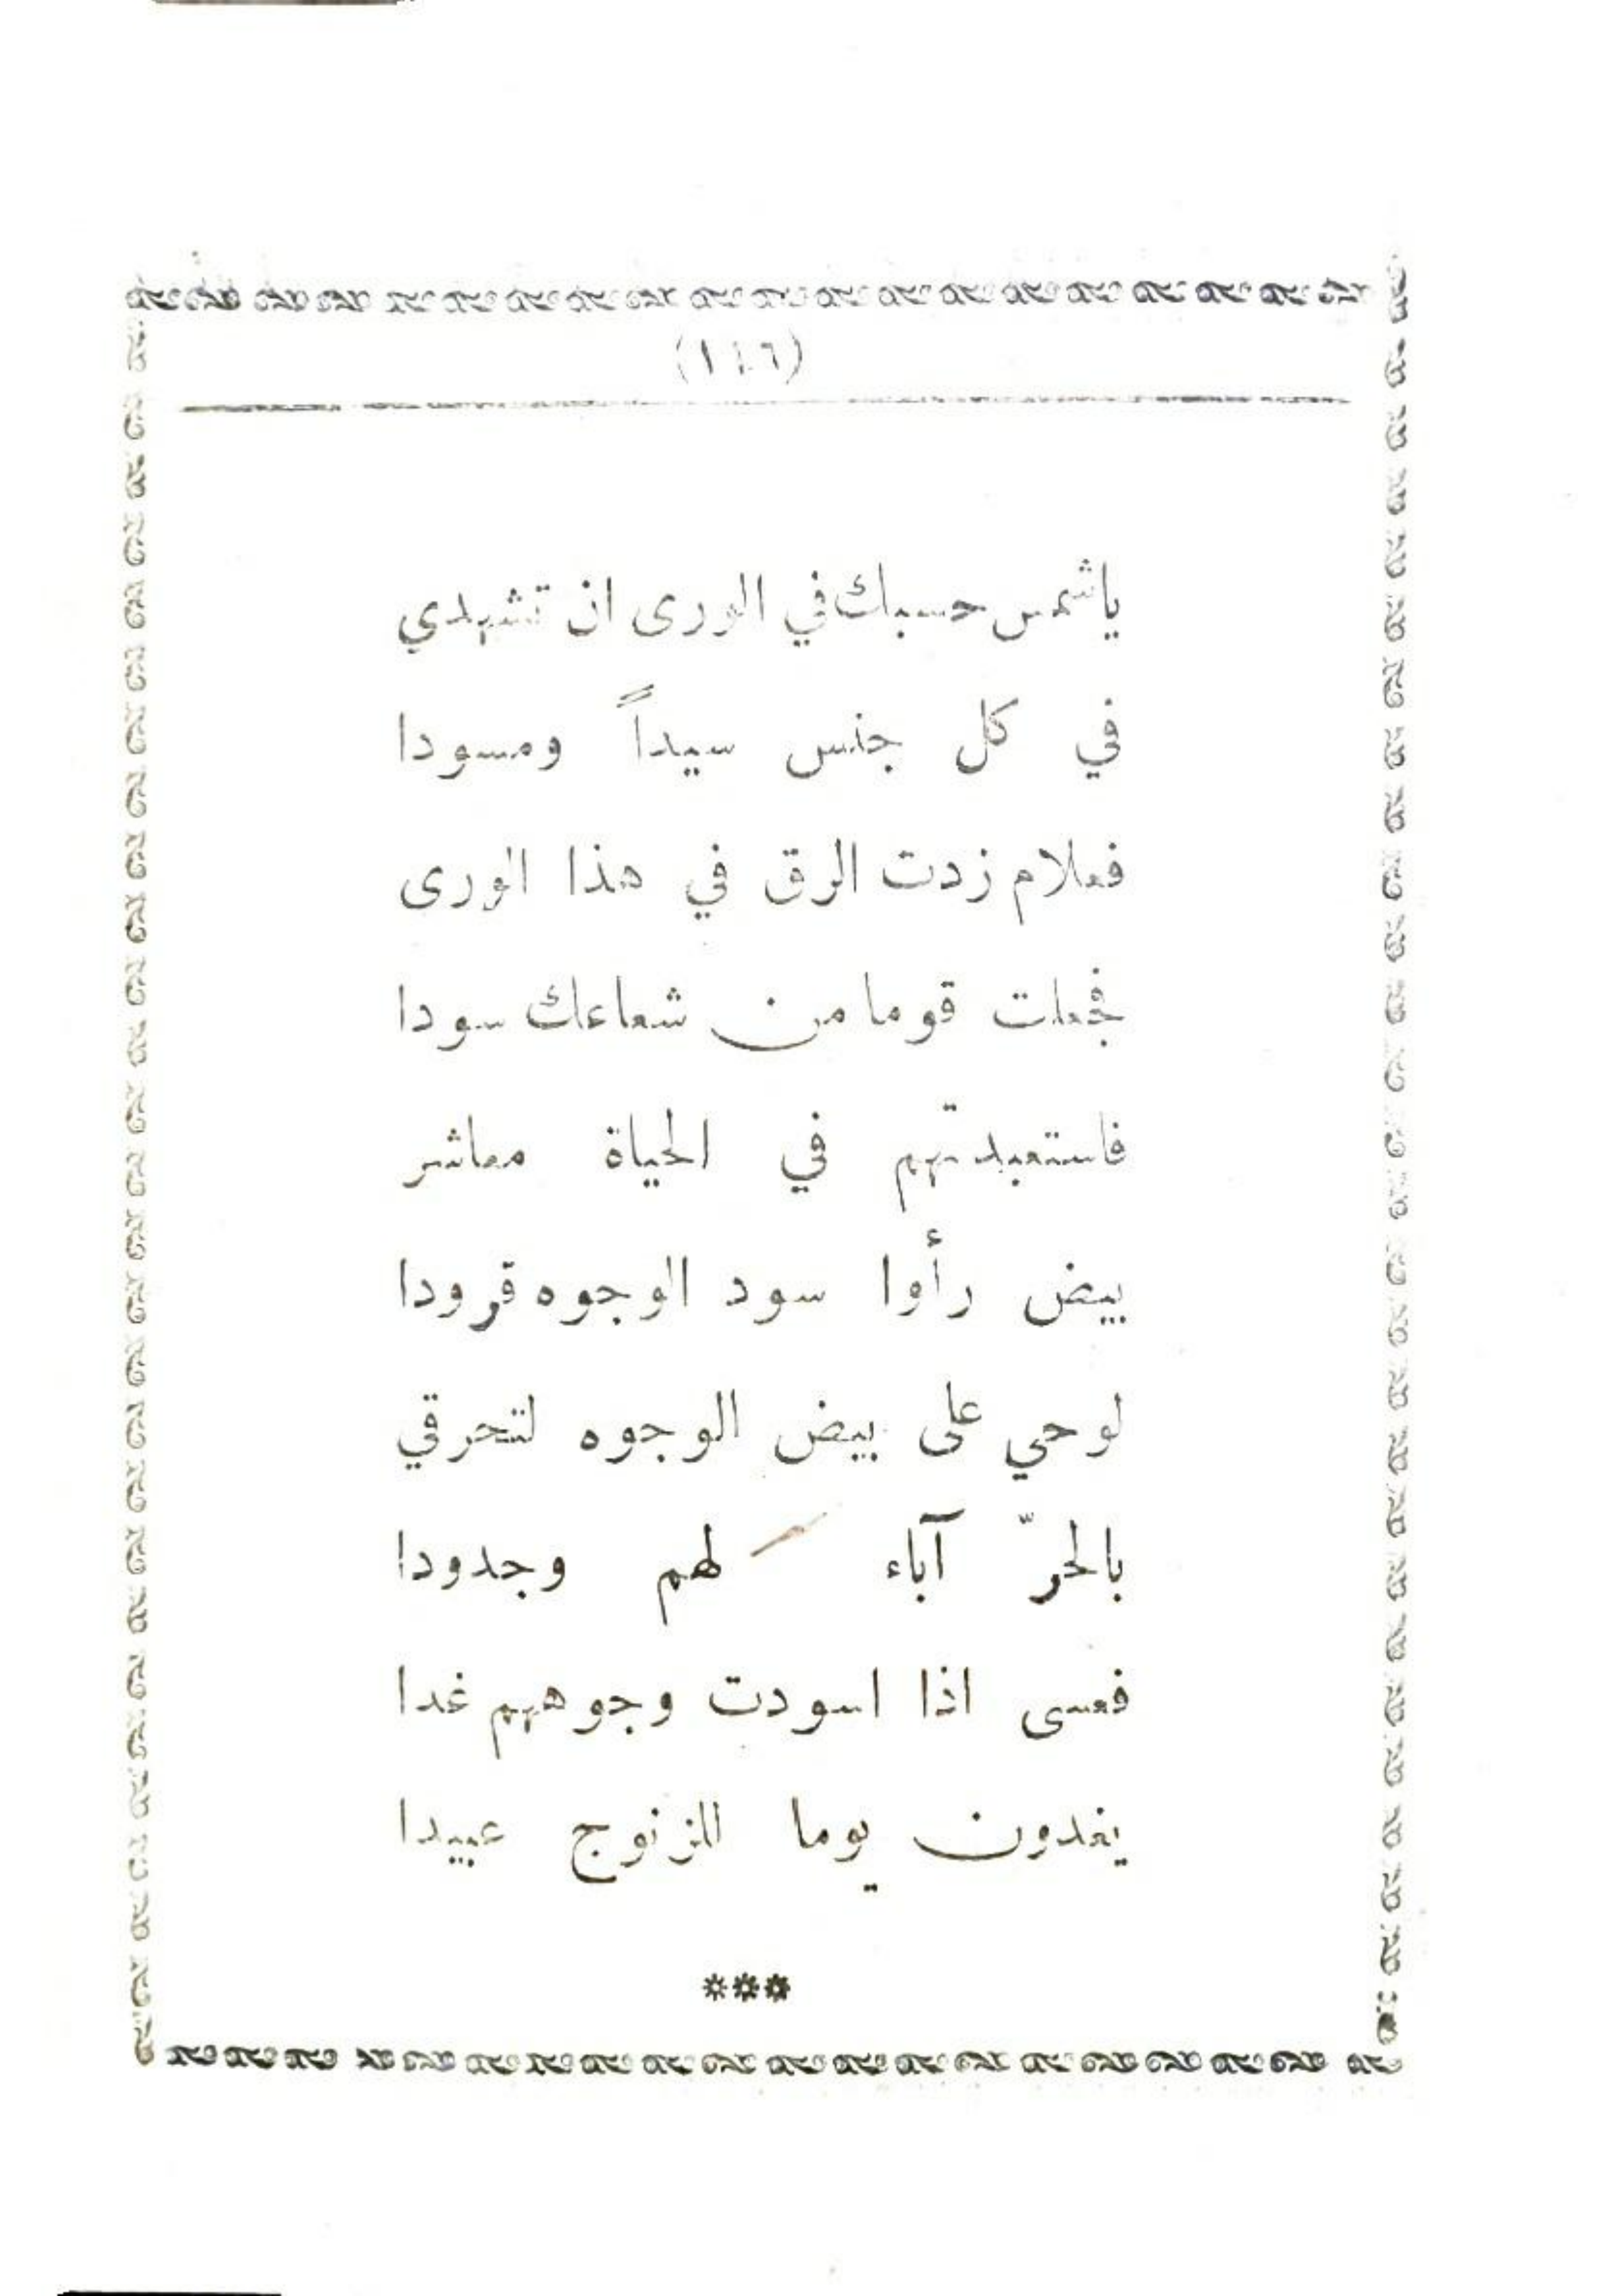 (١١٦)
ياشمس حسبك في الورى ان تشهدي
في كل جنس سيداً ومسودا
فعلام زدت الرق في هذا الورى
فجعلت قوما من شعاعك سودا
فاستعبدتهم في الحياة معاشر
بيض رأوا سود الوجوه قرودا
لوحي على بيض الوجوه لتحرقي
بالحرّ آباء لهم وجدودا
فعسى اذا اسودت وجوههم غدا
يغدون يوما للزنوج عبيدا
***